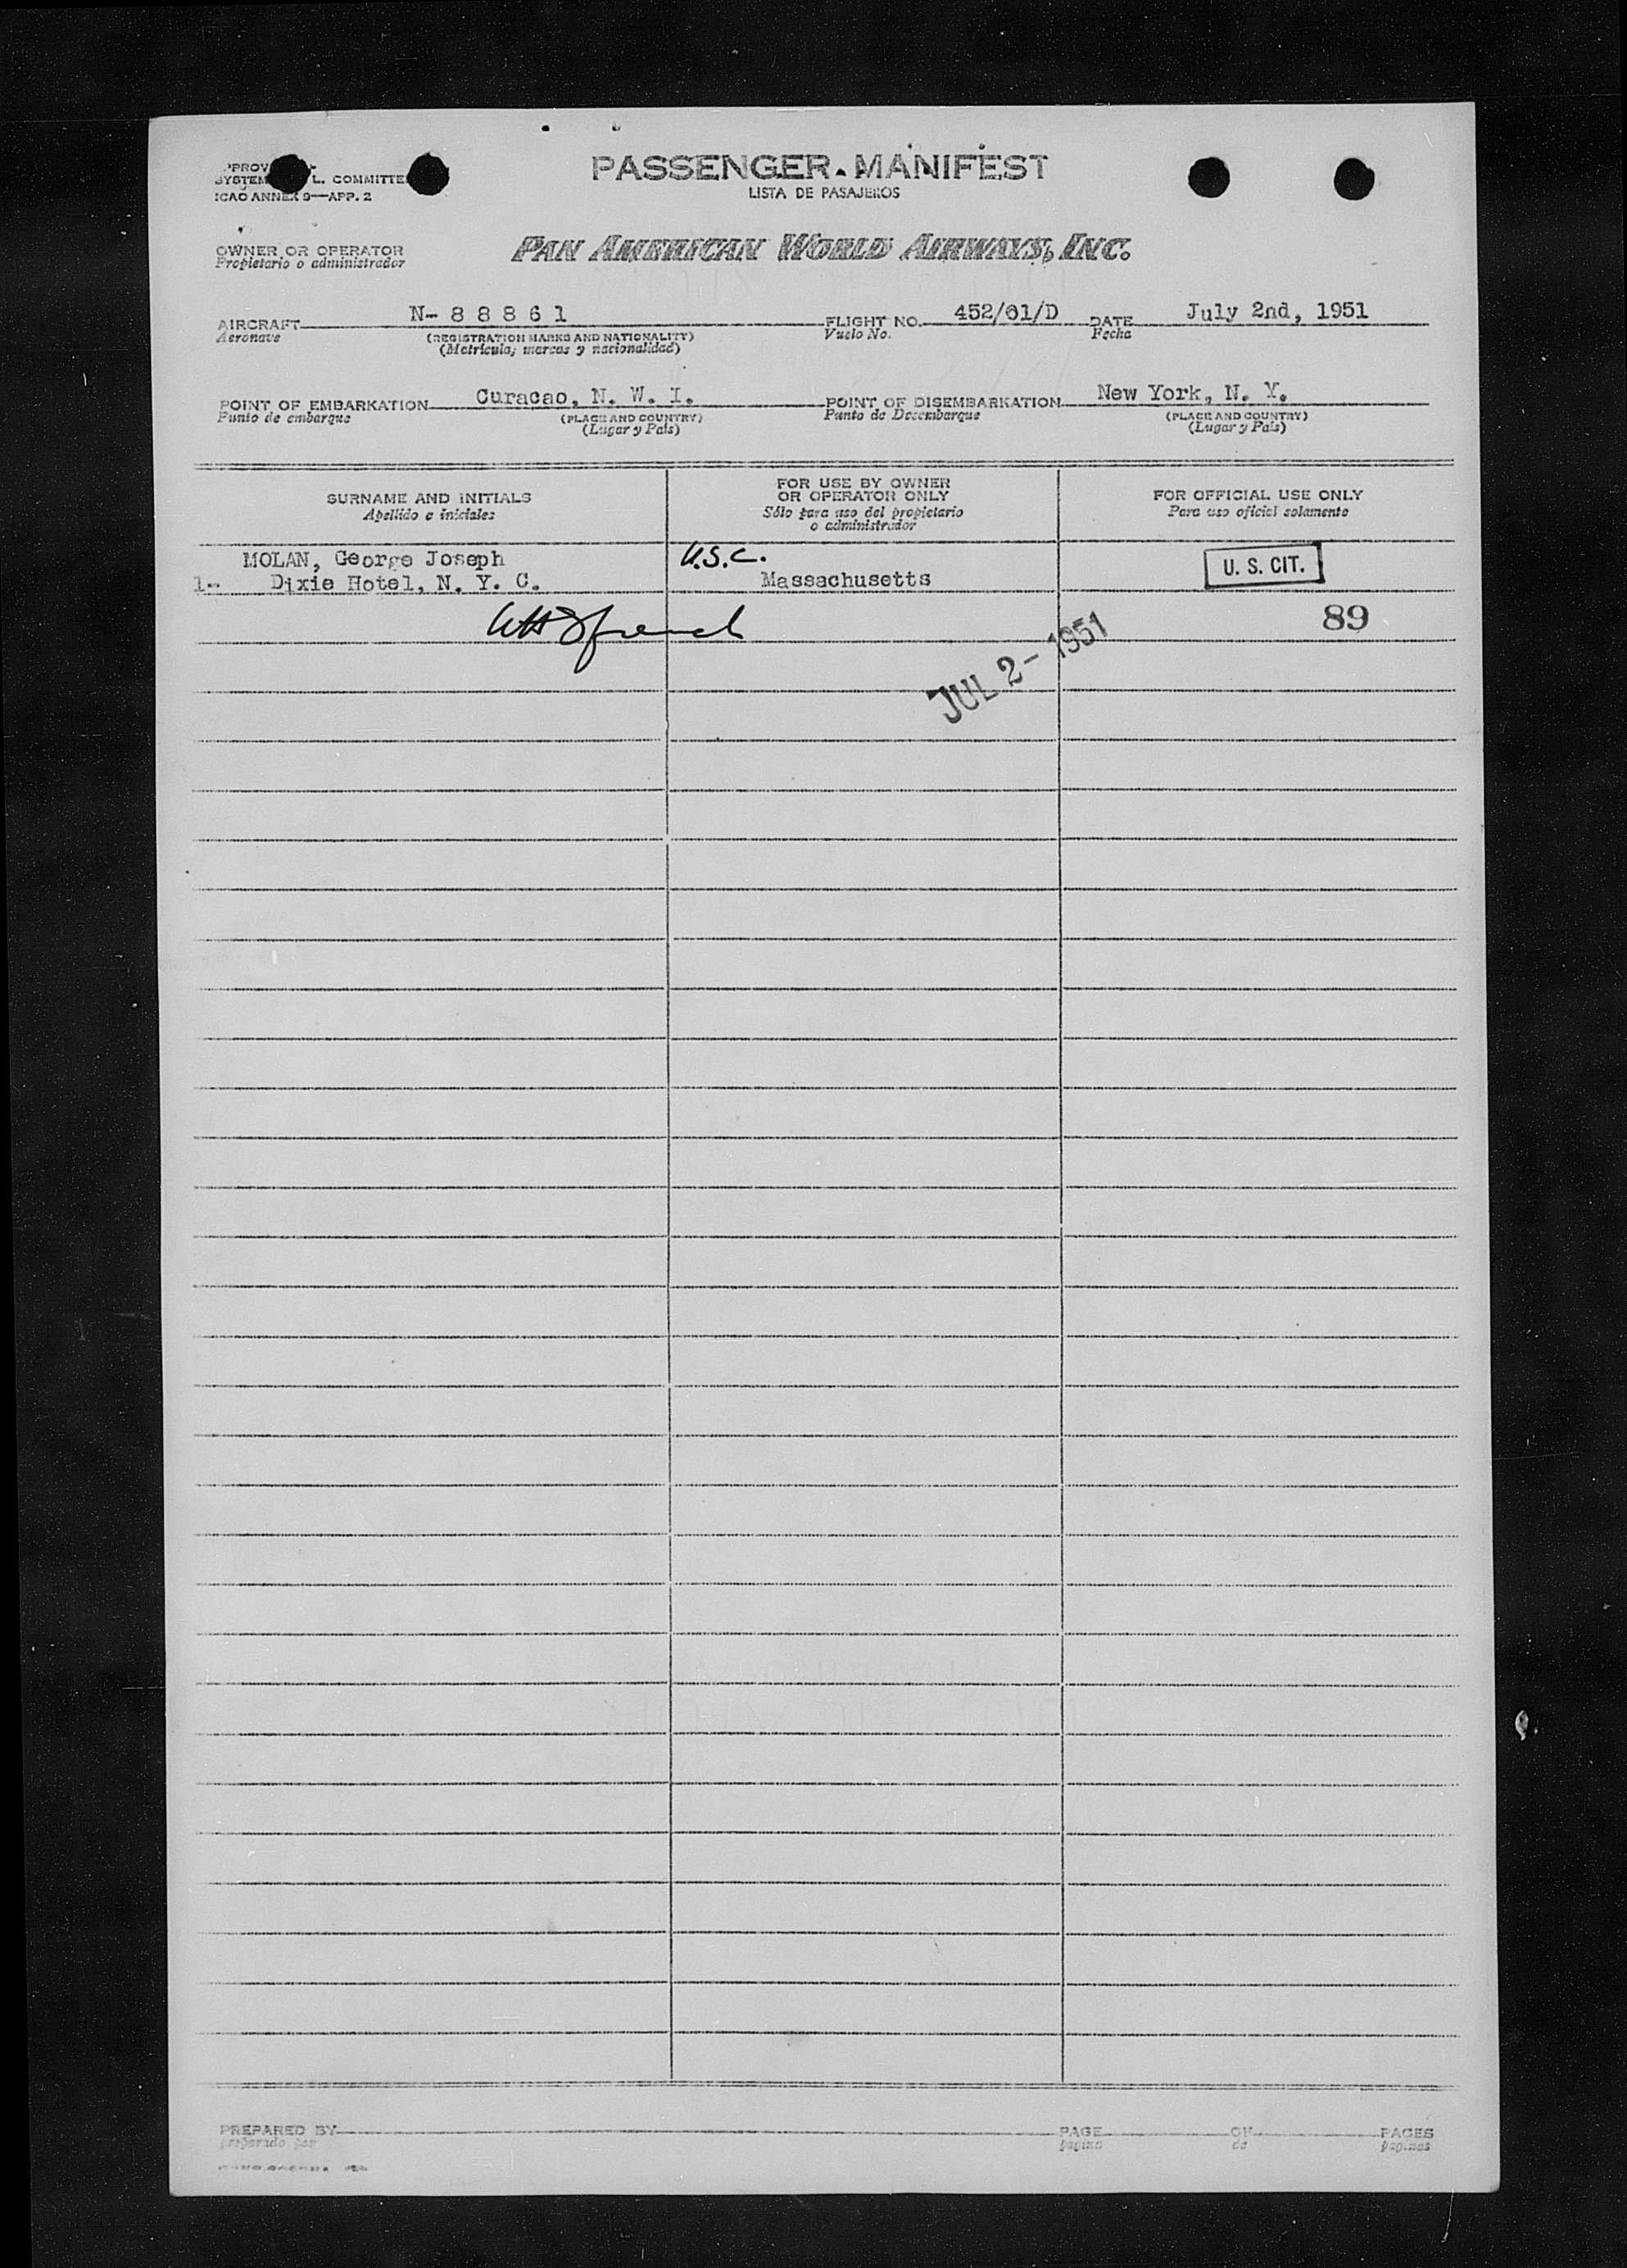 PASSENGER MANIFEST
LISTA DE PASAJEROS
L. COMMITTEE
ICAO ANNEX 9—APP. 2
OWNER OR OPERATOR
Propietario o administrador
PAN AMERICAN WORLD AIRWAYS, INC.
AIRCRAFT N-88861 FLIGHT NO. 452/61/D DATE July 2nd, 1951
Aeronave (REGISTRATION MARKS AND NATIONALITY) Vuelo No. Fecha
(Matrícula, marcas y nacionalidad)
POINT OF EMBARKATION Curacao, N. W. I. POINT OF DISEMBARKATION New York, N. Y.
Punto de embarque (PLACE AND COUNTRY) Punto de Desembarque (PLACE AND COUNTRY)
(Lugar y País) (Lugar y País)
SURNAME AND INITIALS
Apellido e iniciales
FOR USE BY OWNER
OR OPERATOR ONLY
Sólo para uso del propietario
o administrador
FOR OFFICIAL USE ONLY
Para uso oficial solamente
MOLAN, George Joseph U.S.C. U. S. CIT.
1- Dixie Hotel, N. Y. C. Massachusetts
89
JUL 2 - 1951
PREPARED BY PAGE OF PAGES
preparado por página de páginas